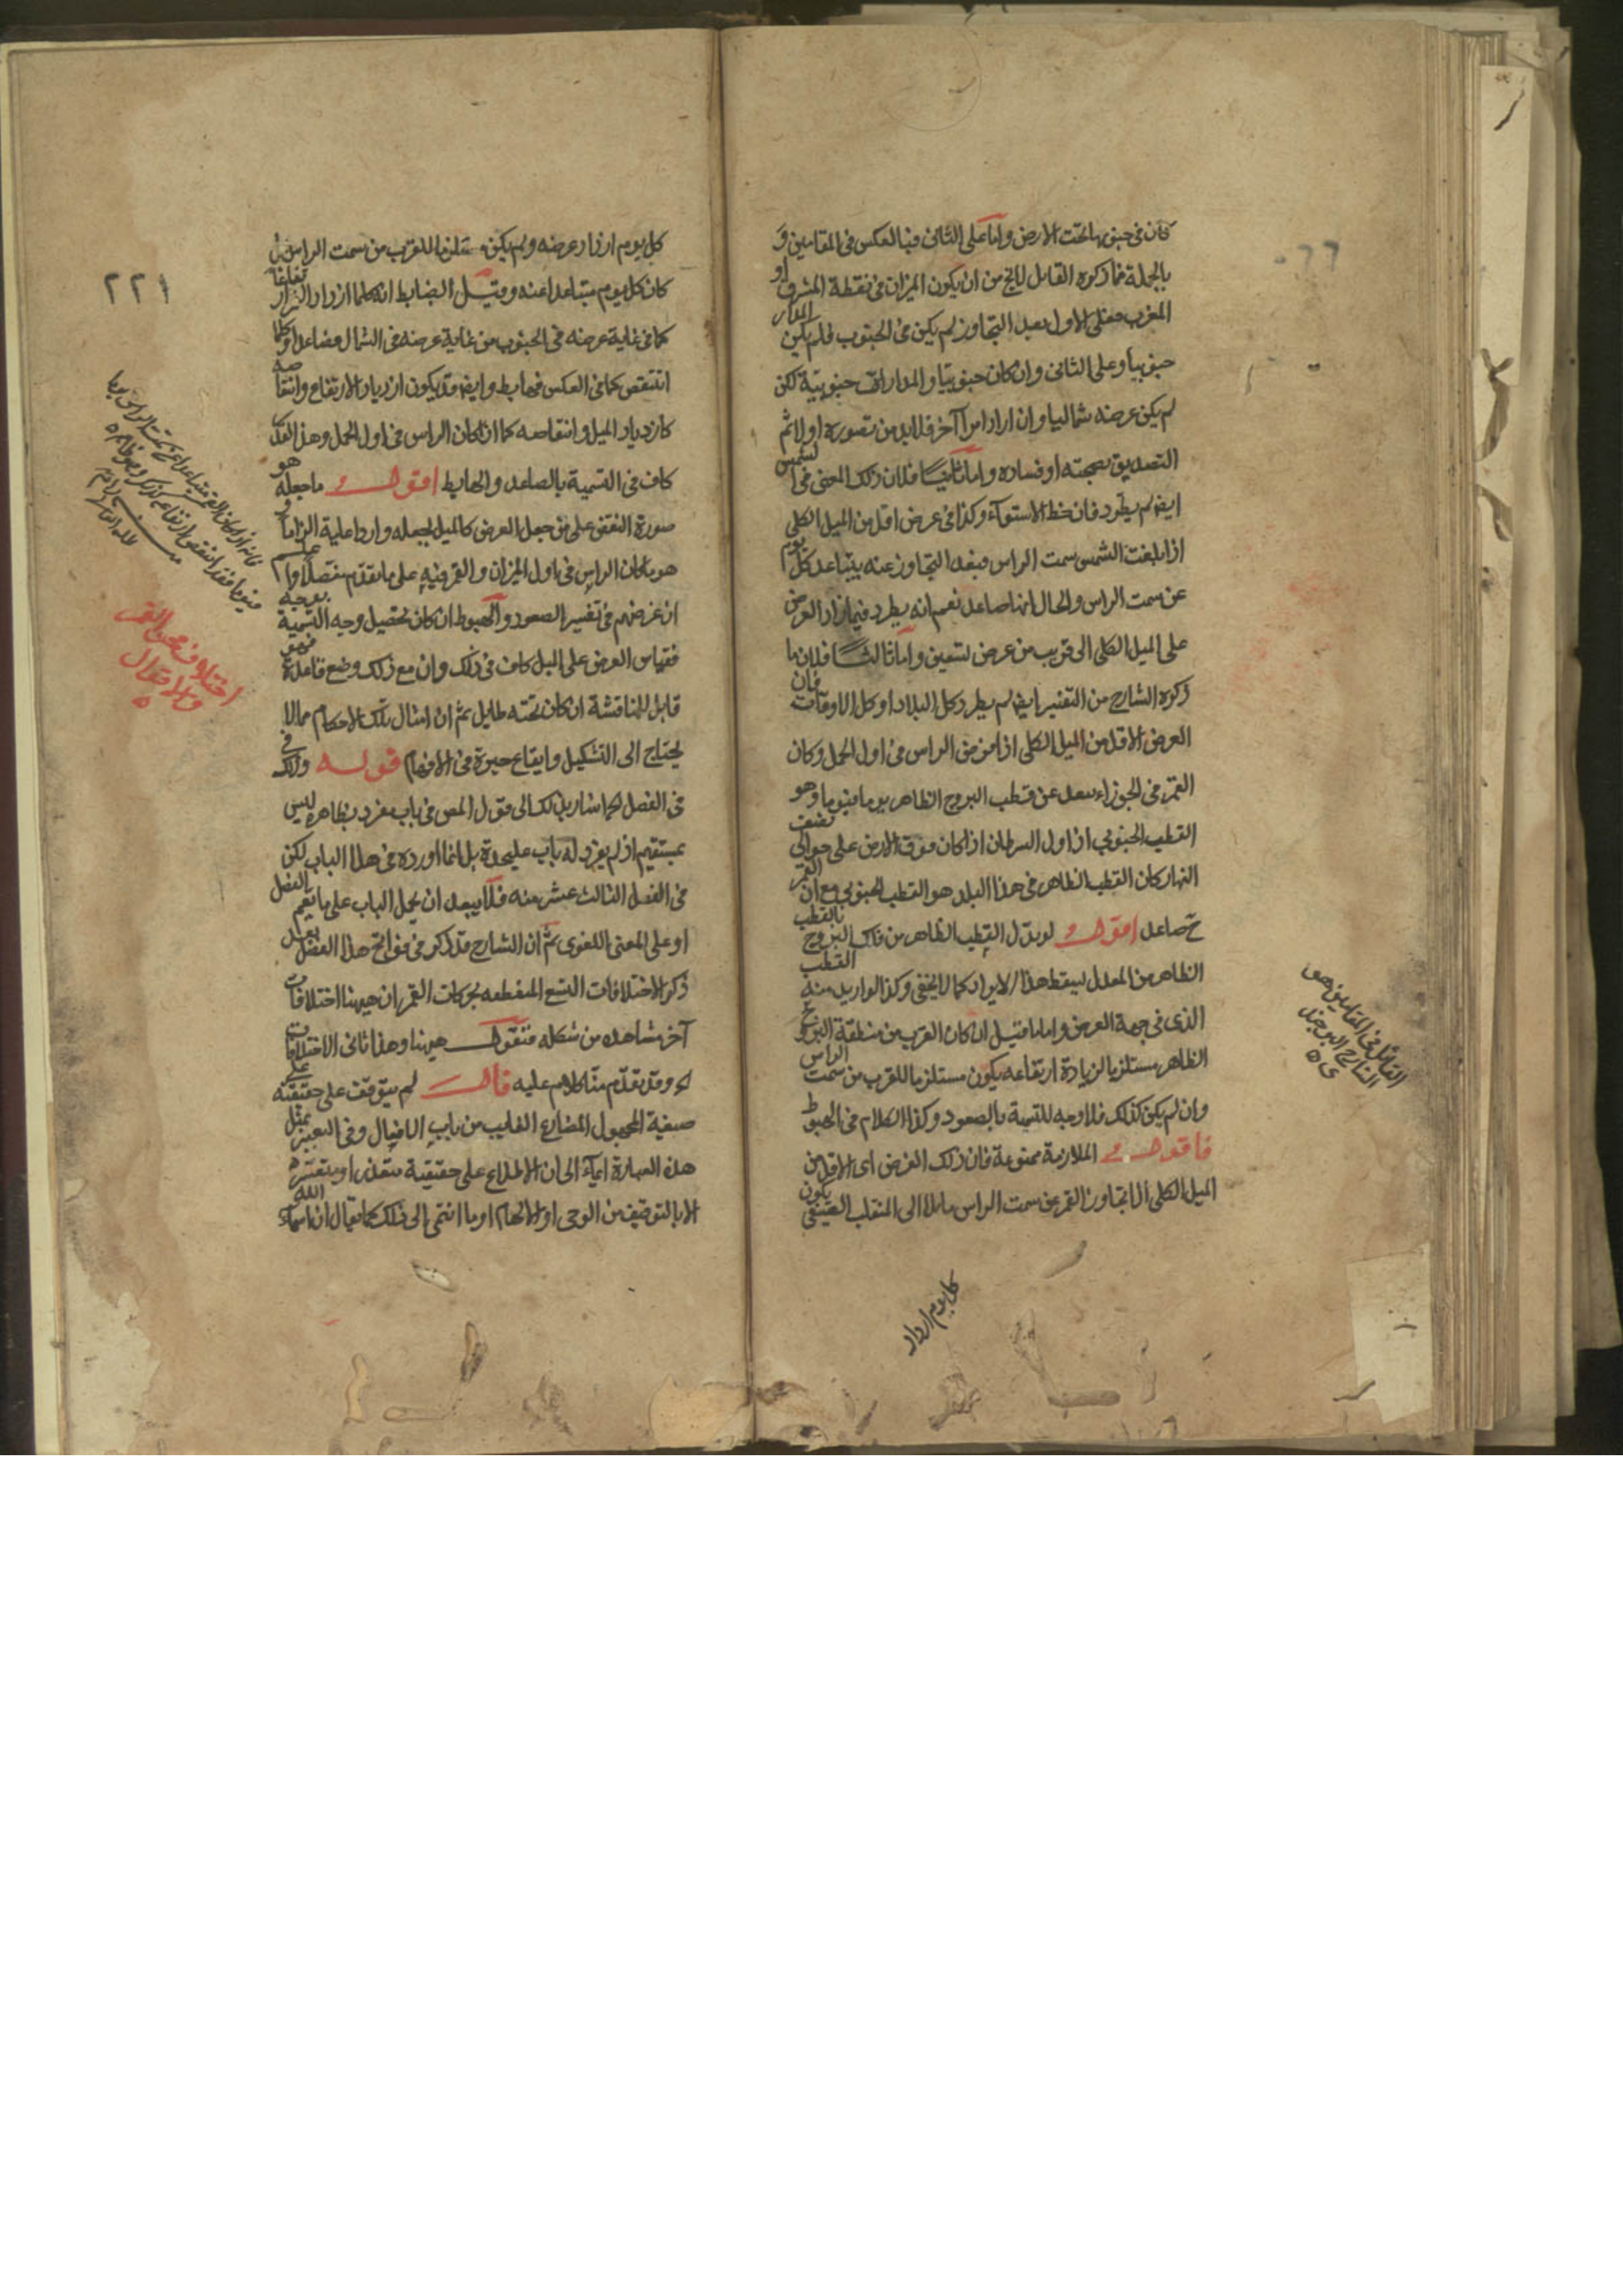 كان في جنوبها تحت الارض واما على الثاني فبالعكس في المقامين و
بالجملة فما ذكره القائل لا يخ من ان يكون الميزان في نقطة المشرق او
المغرب فعلى الاول بعد التجاوز لم يكن في الجنوب فلم يكن المدار
جنوبيا وعلى الثاني وان كان جنوبيا والمدارات جنوبية لكن
لم يكن عرضه شماليا وان اراد امرا آخر فلا بد من تصوره اولا ثم
التصديق بصحته او فساده واما ثانيا فلان ذلك المعنى في الشمس
ايضا لم يطرد فان خط الاستواء وكذا في عرض اقل من الميل الكلي
اذا بلغت الشمس سمت الراس فبعد التجاوز عنه يتباعد كل يوم
عن سمت الراس والحال انها صاعد نعم انه يطرد فيما زاد العرض
على الميل الكلي الى قريب من عرض تسعين واما ثالثا فلان ما
ذكره الشارح من التفسير ايضا لم يطرد كل البلاد او كل الاوقات فان
العرض الاقل من الميل الكلي اذا فرض الراس في اول الحمل وكان
القمر في الجوزاء بعد عن قطب البروج الظاهر يوما فيوما وهو
القطب الجنوبي اذ اول السرطان اذا كان فوق الارض على حوالي نصف
النهار كان القطب الظاهر في هذا البلد هو القطب الجنوبي مع ان القمر
ح صاعد اقول لو بدل القطب الظاهر من فلك البروج بالقطب
الظاهر من المعدل ليسقط هذا الايراد كما لا يخفى وكذا لو اريد منه القطب
الذي في جهة العرض واما ما قيل ان كان القرب من منطقة البروج
الظاهر مستلزما لزيادة ارتفاعه يكون مستلزما للقرب من سمت الراس
وان لم يكن كذلك فلا وجه للتسمية بالصعود وكذا الكلام في الهبوط
فاقول الملازمة ممنوعة فان ذلك العرض اى الاقل من
الميل الكلي اذا تجاوز القمر عن سمت الراس مائلا الى المنقلب الصيفي يكون
كل يوم ازداد
القائل في المقامين هو
الشارح البرجندي
٢٢١
كل يوم ازداد عرضه ولم يكن مستلزما للقرب من سمت الراس بل
كان كل يوم متباعدا عنه وقيل الضابط انه كلما ازداد ارتفاعا
كما في غاية عرضه في الجنوب من غاية عرضه في الشمال فصاعد او كلما
انتقص كما في العكس فهابط وايضا قد يكون ازدياد الارتفاع وانتقاصه
كازدياد الميل وانتقاصه كما اذا كان الراس في اول الحمل وهذا القدر
كاف في التسمية بالصاعد والهابط اقول ما جعله هو
صورة النقض على من جعل العرض كالميل يجعله واردا عليه الزاما و
هو ما كان الراس في اول الميزان والقمر فيه على ما تقدم مفصلا واعلم
ان غرضهم في تفسير الصعود والهبوط ان كان تحصيل وجه التسمية بوجه
فقياس العرض على الميل كاف في ذلك وان مع ذلك وضع قاعدة فهو
قابل للمناقشة ان كان تحته طايل ثم ان امثال تلك الاحكام مما لا
يحتاج الى التشكيل وايقاع حيرة في الافهام قوله وذلك في
في الفصل لما اشار بذلك الى قول المص في باب مفرد بظاهره ليس
بمستقيم اذ لم يفرد له باب عليحدة بل انما اورده في هذا الباب لكن
في الفصل الثالث عشر منه فلا يبعد ان يحمل الباب على ما يعم الفصل
او على المعنى اللغوي ثم ان الشارح قد ذكر في فواتح هذا الفصل بعد
ذكر الاختلافات التسع المتعلقة بحركات القمر ان ههنا اختلافات
آخر مشاهده من شكله فنقول ههنا وهذا ثاني الاختلافات
له وقد تقدم منا كلام عليه قال لم يتوقف على حقيقته على
صيغة المجهول المضارع الغايب من باب الافعال وفي التعبير بمثل
هذه العبارة ايماء الى ان الاطلاع على حقيقية متعذر او متعسر
الا بالتوقيف من الوحي او الالهام او ما انتمى الى ذلك كما يقال ان اسماء الله
اختلاف محو القمر
والاقوال